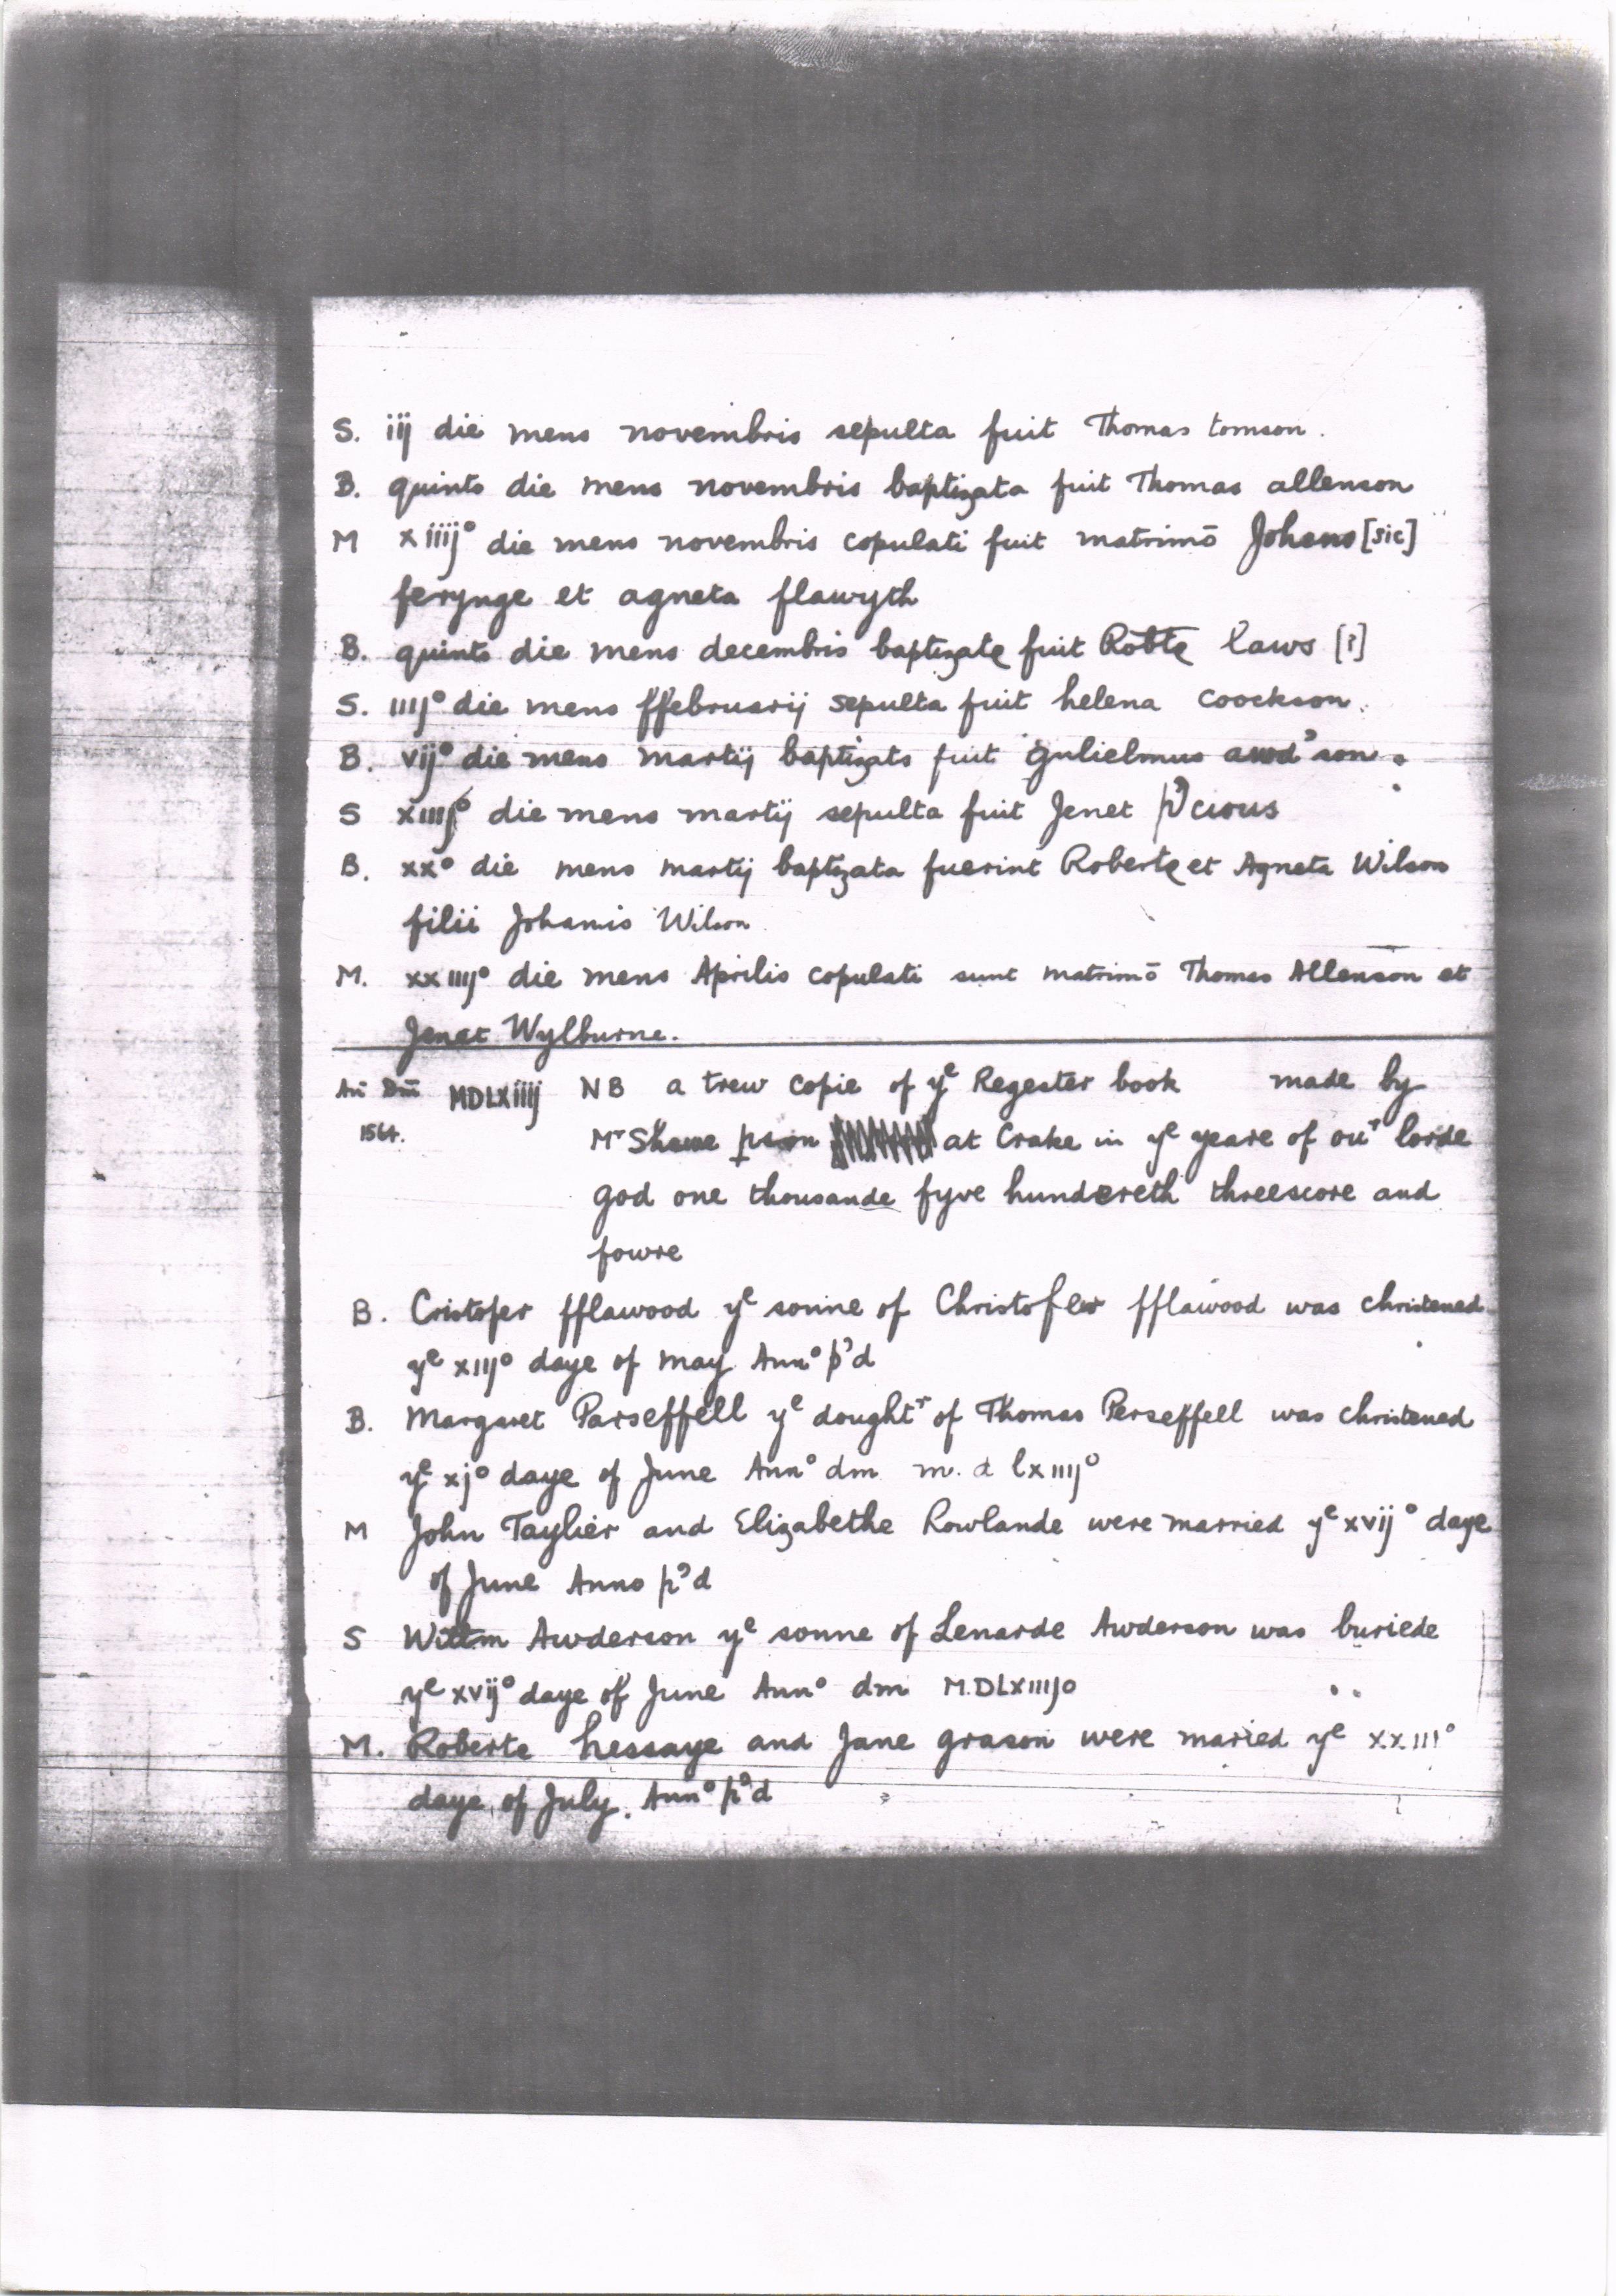 S. iij die mens novembris sepulta fuit Thomas tomson.
B. quinto die mens novembris baptizata fuit Thomas allenson
M xiiij° die mens novembris copulati fuit matrimō Johens [sic]
ferynge et agneta flawyth
B. quinto die mens decembris baptizate fuit Robte laws [?]
S. iiij° die mens ffebruarij sepulta fuit helena coockson.
B. vij° die mens martij baptizato fuit gulielmus awd'son.
S xiiij° die mens martij sepulta fuit Jenet p'cious
B. xx° die mens martij baptizata fuerint Roberte et Agneta Wilson
filii Johanis Wilson
M. xxiiij° die mens Aprilis copulati sunt matrimō Thomas Allenson et
Jenet Wylburne.
An̄ Dm̄ MDLXiiij NB a trew copie of yᵉ Regester book made by
1564. Mʳ Shawe pson at Crake in yᵉ yeare of ouʳ lorde
god one thousande fyve hundereth threescore and
fowre
B. Cristofer fflawood yᵉ sonne of Christofer fflawood was christened
yᵉ xiij° daye of may Ann° p'd
B. Margaret Parseffell yᵉ doughtʳ of Thomas Perseffell was christened
yᵉ xj° daye of June Ann° dm m. d lxiiij°
M John Taylier and Elizabethe Rowlande were married yᵉ xvij° daye
of June Anno p'd
S Willm Awderson yᵉ sonne of Lenarde Awderson was buriede
yᵉ xvij° daye of June Ann° dm M.DLXiiijo
M. Roberte hessaye and Jane grason were maried yᵉ xxiii°
daye of July. Ann° p'd